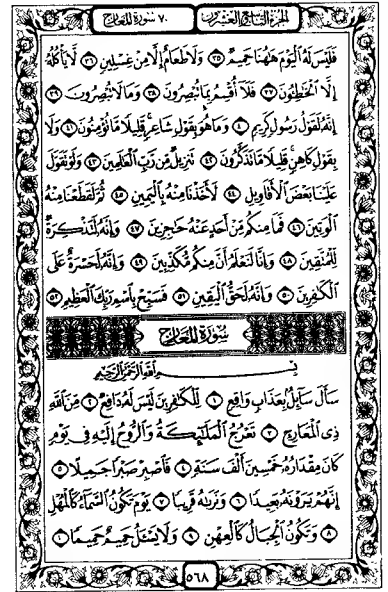 الجزء التاسع والعشرون
٧٠ سورة المعارج
فَلَيْسَ لَهُ الْيَوْمَ هَٰهُنَا حَمِيمٌ ٣٥ وَلَا طَعَامٌ إِلَّا مِنْ غِسْلِينٍ ٣٦ لَّا يَأْكُلُهُ
إِلَّا الْخَاطِئُونَ ٣٧ فَلَا أُقْسِمُ بِمَا تُبْصِرُونَ ٣٨ وَمَا لَا تُبْصِرُونَ ٣٩
إِنَّهُ لَقَوْلُ رَسُولٍ كَرِيمٍ ٤٠ وَمَا هُوَ بِقَوْلِ شَاعِرٍ قَلِيلًا مَّا تُؤْمِنُونَ ٤١ وَلَا
بِقَوْلِ كَاهِنٍ قَلِيلًا مَّا تَذَكَّرُونَ ٤٢ تَنزِيلٌ مِّن رَّبِّ الْعَالَمِينَ ٤٣ وَلَوْ تَقَوَّلَ
عَلَيْنَا بَعْضَ الْأَقَاوِيلِ ٤٤ لَأَخَذْنَا مِنْهُ بِالْيَمِينِ ٤٥ ثُمَّ لَقَطَعْنَا مِنْهُ
الْوَتِينَ ٤٦ فَمَا مِنكُم مِّنْ أَحَدٍ عَنْهُ حَاجِزِينَ ٤٧ وَإِنَّهُ لَتَذْكِرَةٌ
لِّلْمُتَّقِينَ ٤٨ وَإِنَّا لَنَعْلَمُ أَنَّ مِنكُم مُّكَذِّبِينَ ٤٩ وَإِنَّهُ لَحَسْرَةٌ عَلَى
الْكَافِرِينَ ٥٠ وَإِنَّهُ لَحَقُّ الْيَقِينِ ٥١ فَسَبِّحْ بِاسْمِ رَبِّكَ الْعَظِيمِ ٥٢
سُورَةُ الْمَعَارِجِ
بِسْمِ اللَّهِ الرَّحْمَٰنِ الرَّحِيمِ
سَأَلَ سَائِلٌ بِعَذَابٍ وَاقِعٍ ١ لِّلْكَافِرِينَ لَيْسَ لَهُ دَافِعٌ ٢ مِّنَ اللَّهِ
ذِي الْمَعَارِجِ ٣ تَعْرُجُ الْمَلَائِكَةُ وَالرُّوحُ إِلَيْهِ فِي يَوْمٍ
كَانَ مِقْدَارُهُ خَمْسِينَ أَلْفَ سَنَةٍ ٤ فَاصْبِرْ صَبْرًا جَمِيلًا ٥
إِنَّهُمْ يَرَوْنَهُ بَعِيدًا ٦ وَنَرَاهُ قَرِيبًا ٧ يَوْمَ تَكُونُ السَّمَاءُ كَالْمُهْلِ
٨ وَتَكُونُ الْجِبَالُ كَالْعِهْنِ ٩ وَلَا يَسْأَلُ حَمِيمٌ حَمِيمًا ١٠
٥٦٨